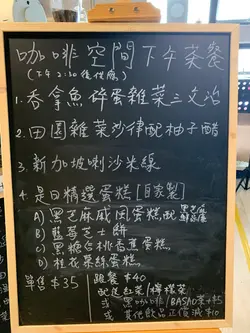 咖啡空間下午茶餐
(下午 2:30 後供應)
1. 吞拿魚碎蛋雜菜三文治
2. 田園雜菜沙律配柚子醋
3. 新加坡喇沙米線
4. 是日精選蛋糕 [自家製]
A) 黑芝麻戚风蛋糕配
B) 藍莓芝士餅
C) 黑糖合桃香蕉蛋糕
D) 桂花果絲蛋糕
單售 $35
跟餐 $40
配送紅茶/檸檬茶
或 黑咖啡/BASAO茶+$5
或 其他飲品正價減$10